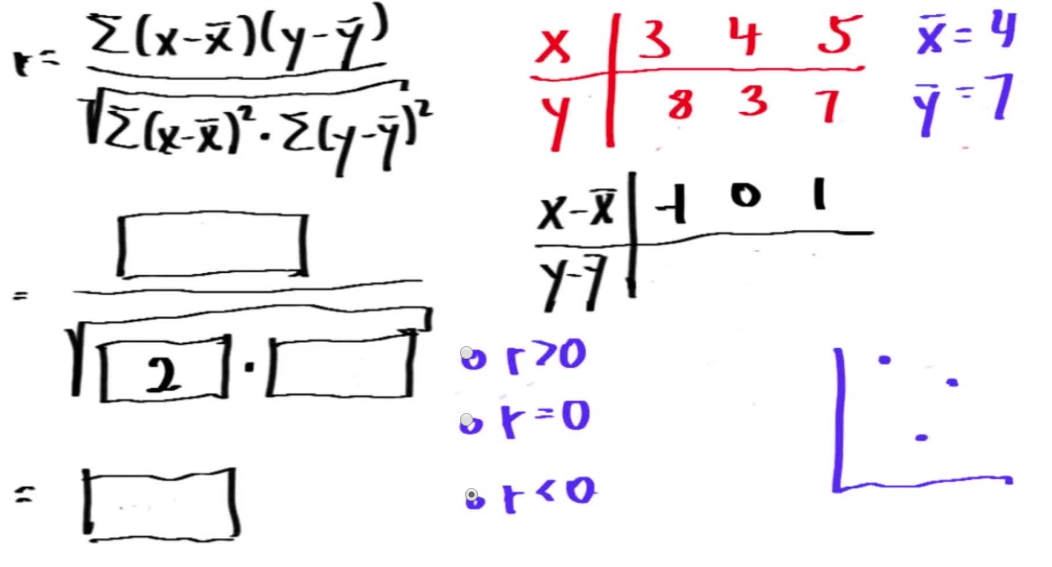 r = Σ(x-x̄)(y-ȳ) / √(Σ(x-x̄)² · Σ(y-ȳ)²)
x | 3 4 5
y | 8 3 7
x̄ = 4
ȳ = 7
x-x̄ | -1 0 1
y-ȳ |
=
√ 2 ·
=
r>0
r=0
r<0